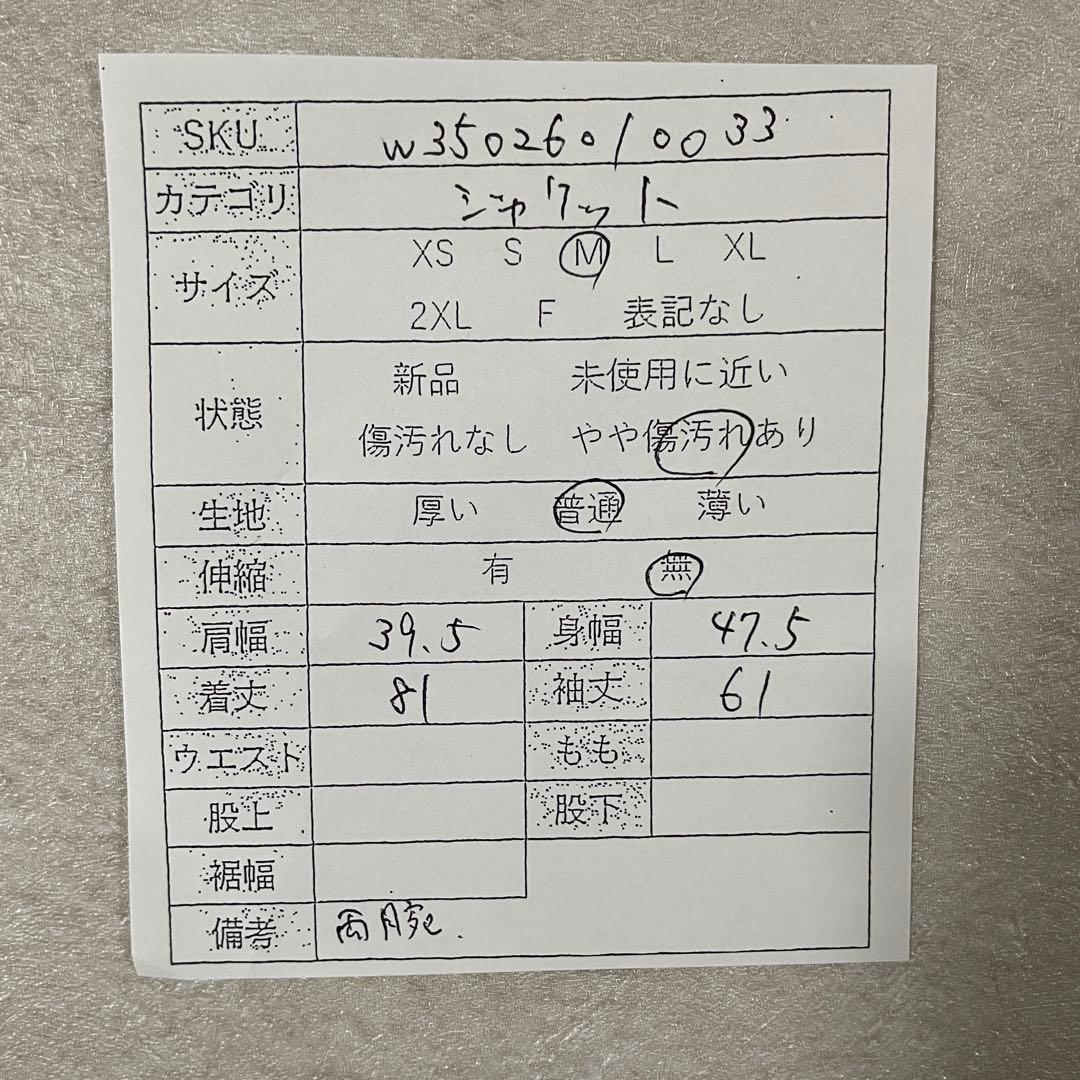 SKU w35026010033
カテゴリ ジャケット
サイズ XS S M L XL
2XL F 表記なし
状態 新品 未使用に近い
傷汚れなし やや傷汚れあり
生地 厚い 普通 薄い
伸縮 有 無
肩幅 39.5 身幅 47.5
着丈 81 袖丈 61
ウエスト もも
股上 股下
裾幅
備考 両腕.